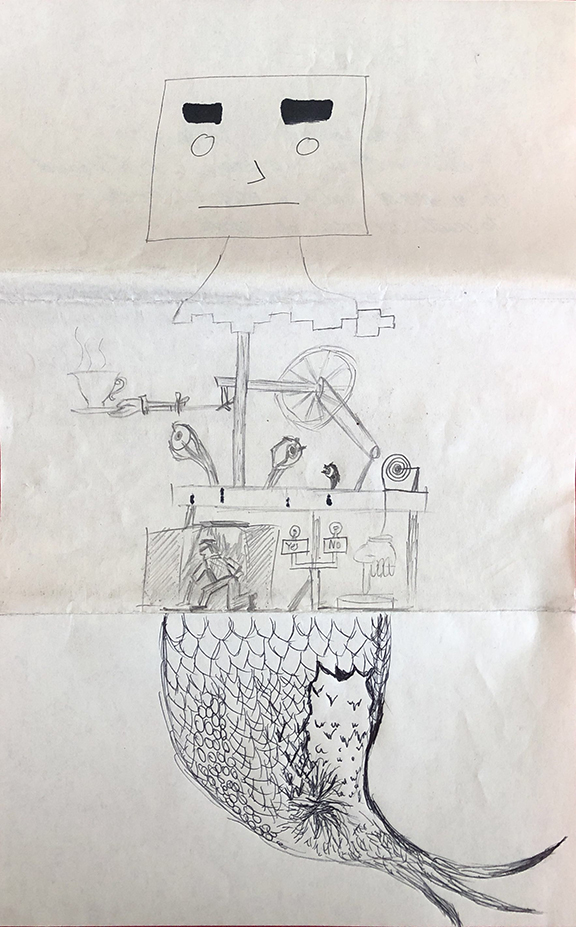 YES NO